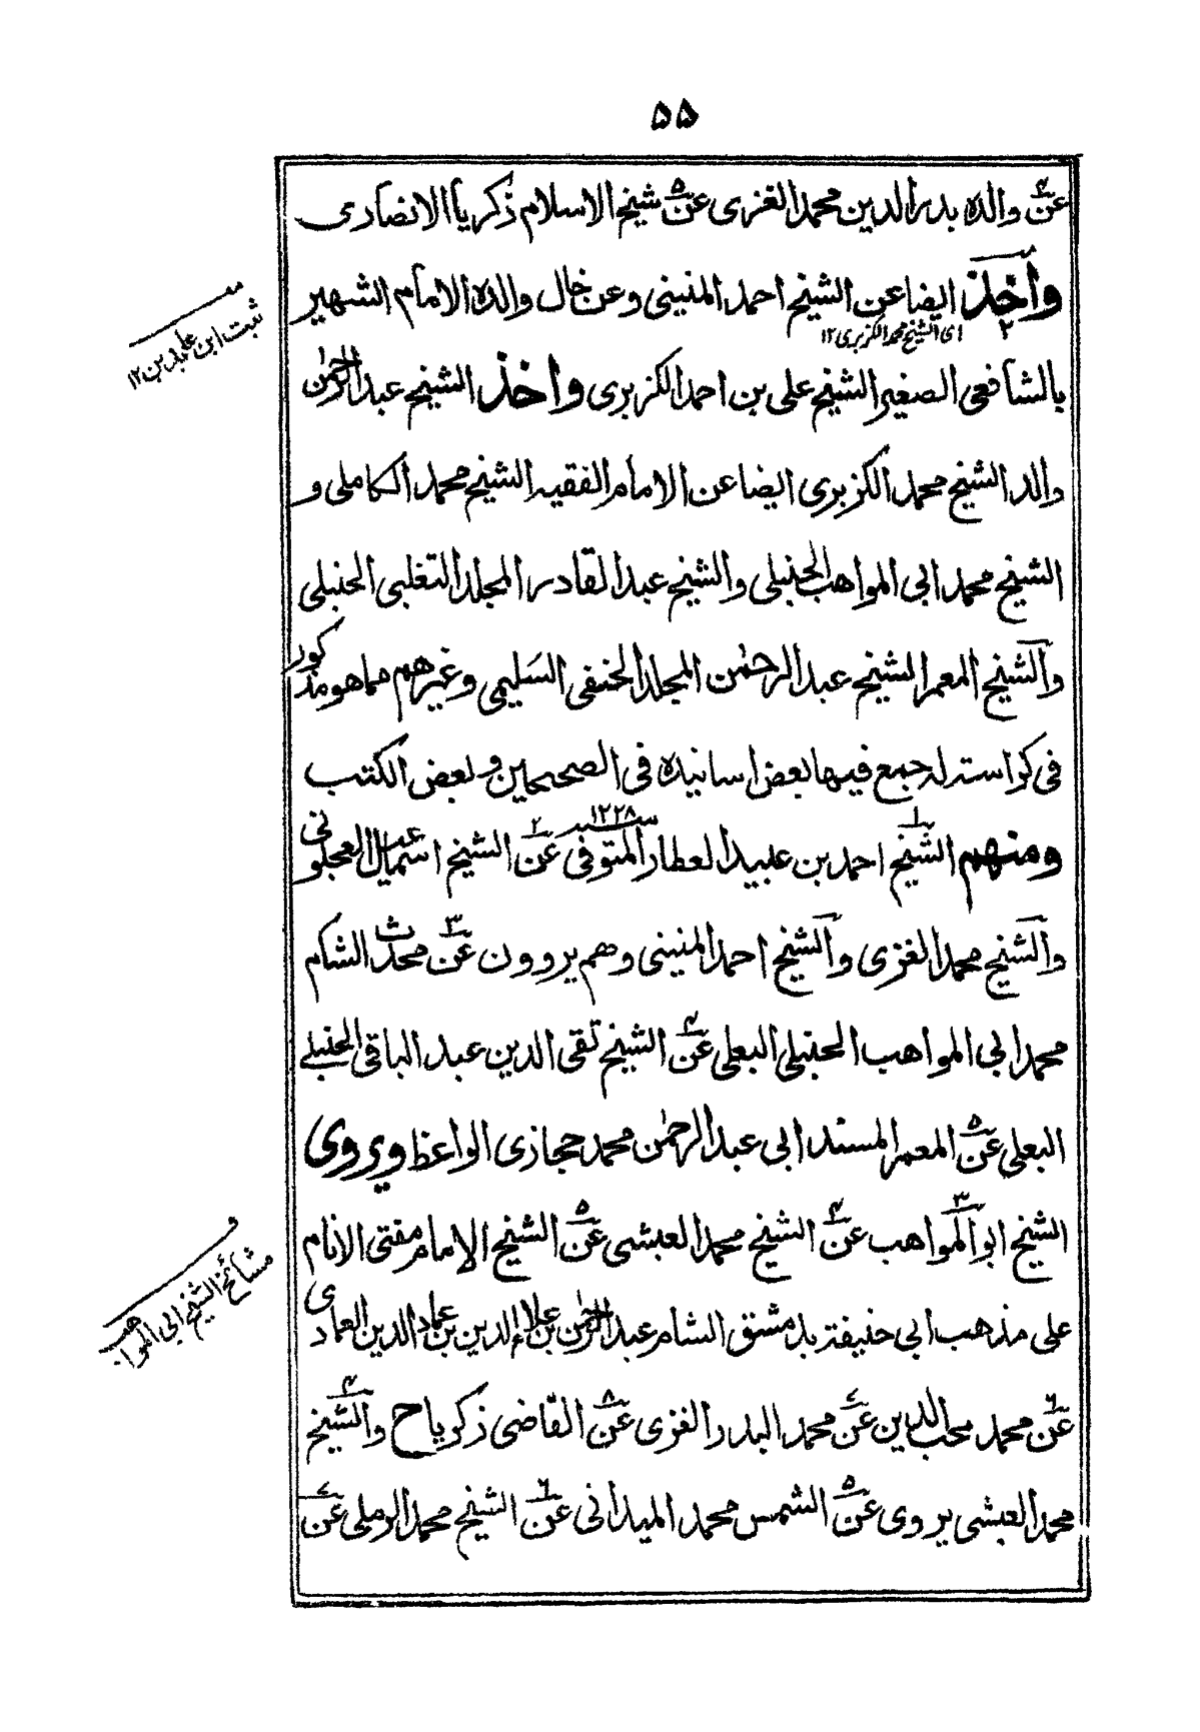 ۵۵
عن والده بدر الدين محمد الغزى عن شيخ الاسلام زكريا الانصارى
واخذ ايضا عن الشيخ احمد المنينى وعن خال والده الامام الشهير
اى الشيخ محمد الكزبرى ١٢
بالشافعى الصغير الشيخ على بن احمد الكزبرى واخذ الشيخ عبد الرحمٰن
والد الشيخ محمد الكزبرى ايضا عن الامام الفقيه الشيخ محمد الكاملى و
الشيخ محمد ابى المواهب الحنبلى والشيخ عبد القادر المجلد التغلبى الحنبلى
والشيخ المعمر الشيخ عبد الرحمٰن المجلد الحنفى السَليمى وغيرهم مما هو مذكور
فى كراسته له جمع فيها بعض اسانيده فى الصحيحين و بعض الكتب
ومنهم الشيخ احمد بن عبيد العطار المتوفى سنه ١٢٢٨ عن الشيخ اسمعيل العجلونى
والشيخ محمد الغزى والشيخ احمد المنينى وهم يروون عن محدث الشام
محمد ابى المواهب الحنبلى البعلى عن الشيخ تقى الدين عبد الباقى الحنبلے
البعلى عن المعمر المسند ابى عبد الرحمٰن محمد حجازى الواعظ ويروى
الشيخ ابو المواهب عن الشيخ محمد العبشى عن الشيخ الامام مفتى الانام
على مذهب ابى حنيفة بدمشق الشام عبد الرحمٰن بن علاء الدين بن عماد الدين العمادى
عن محمد محب الدين عن محمد البدر الغزى عن القاضى زكريا ح والشيخ
محمد العبشى يروى عن الشمس محمد الميدانى عن الشيخ محمد الرملى عن
ثبت ابن عابدين ١٢
مشائخ الشيخ ابى المواهب